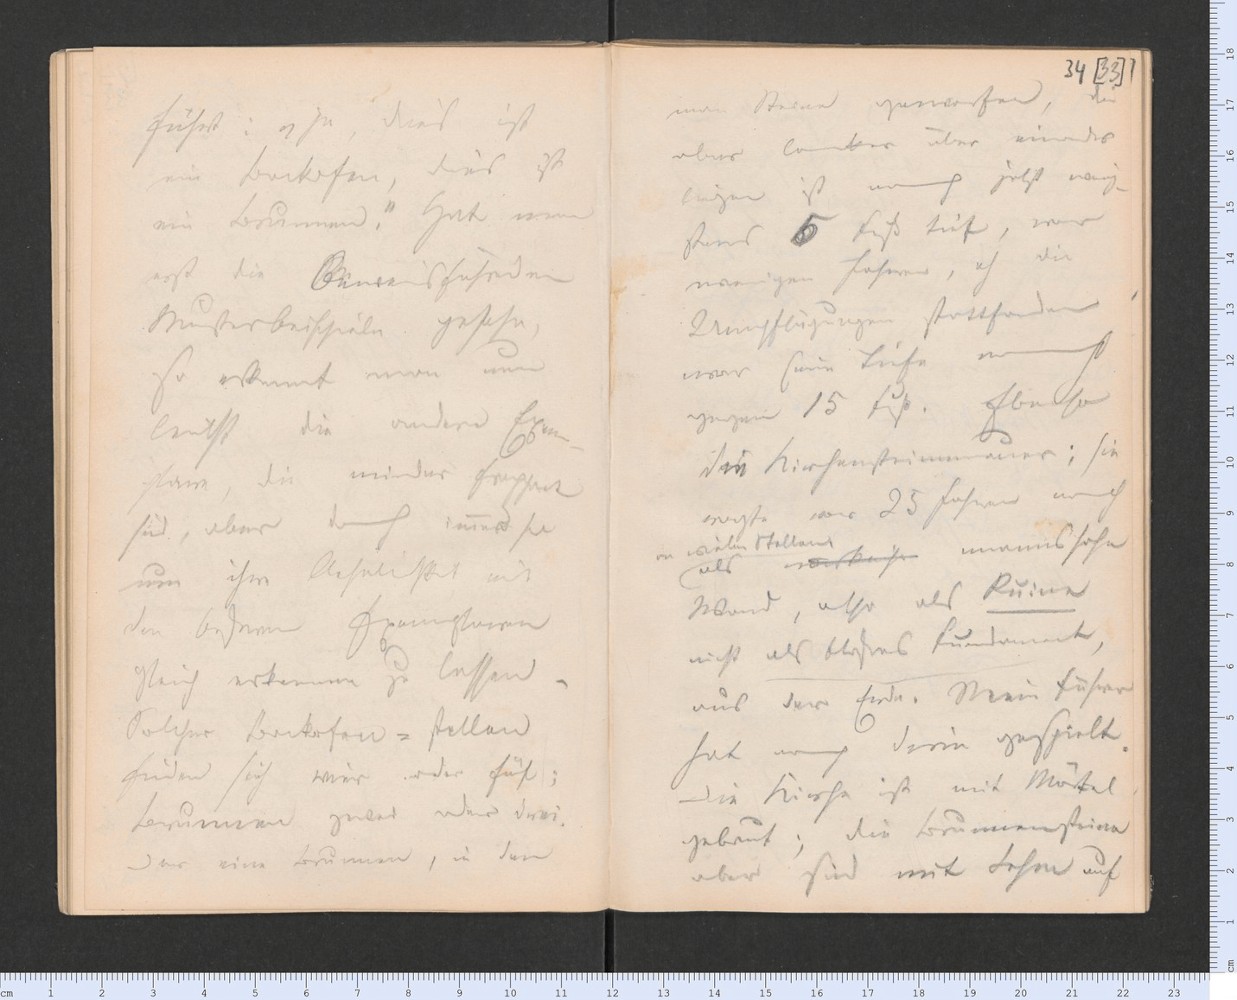 führt: „Ja, dies ist
ein Backofen, dies ist
ein Brunnen." Hat man
erst die Beweisführenden
Musterbeispiele gesehn,
so erkennt man nun
leicht die andern Exem-
plare, die minder frappant
sind, aber doch immer
um ihre Aehnlichkeit mit
den bessren Exemplaren
gleich erkennen zu lassen.
Solcher Backofen=stellen
finden sich vier oder fünf;
Brunnen zwei oder drei.
Der eine Brunnen, in den
34 [33]
man Steine geworfen, die
aber locker über einander
liegen ist noch jetzt wenig-
stens 6 Fuß tief, vor
wenigen Jahren, eh die
Umpflügungen stattfanden
war seine Tiefe noch
gegen 15 Fuß. Ebenso
die Kirchensteinmauer; sie
ragte vor 25 Jahren noch
an vielen Stellen
als mannshohe
Wand, also als Ruine
nicht als bloßes Fundament,
aus der Erde. Mein Führer
hat noch darin gespielt.
Die Kirche ist mit Mörtel
gebaut; die Brunnensteine
aber sind mit Lehm auf